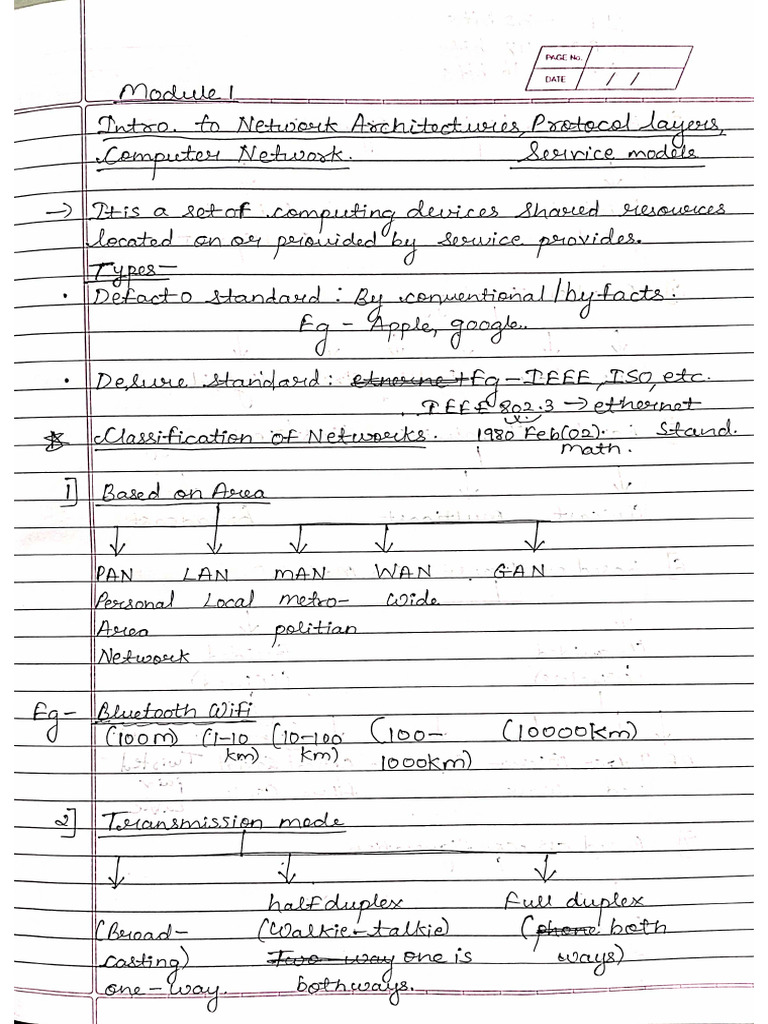 PAGE No.
DATE / /
Module 1
Intro. to Network Architectures, Protocol layers,
Computer Network. Service models
→ It is a set of computing devices shared resources
located on or provided by service provides.
Types-
• Defacto standard : By conventional/by facts.
Eg - Apple, google.
• Dejure standard : Eg - IEEE, ISO, etc.
IEEE 802.3 → ethernet
Classification of Networks. 1980 Feb(02). Stand.
math.
1] Based on Area
PAN LAN MAN WAN GAN
Personal Local metro- wide
Area politian
Network
Eg- Bluetooth Wifi
(100m) (1-10 (10-100 (100- (10000km)
km) km) 1000km)
2] Transmission mode
half duplex Full duplex
(Broad- (Walkie-talkie) (phone both
casting) Two-way one is ways)
one-way. bothways.